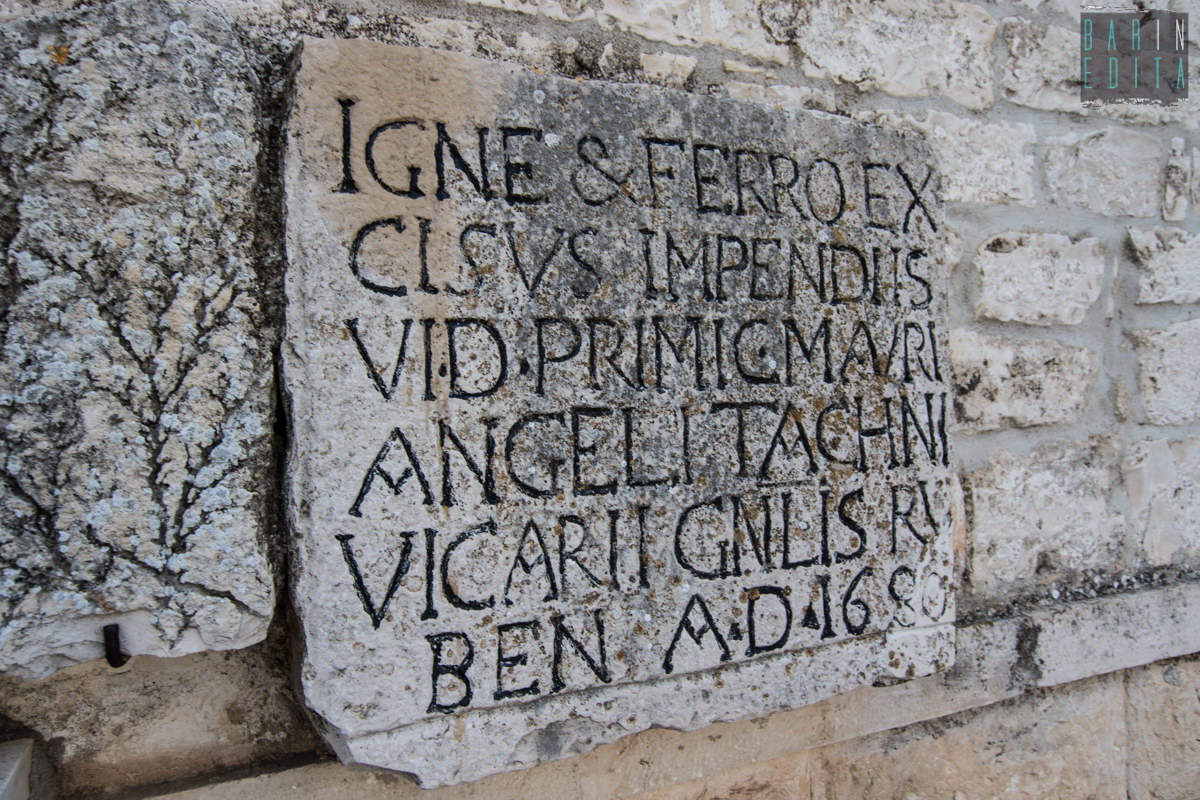 IGNE & FERRO EX
CISVS IMPENDIIS
VI·D·PRIMIC·MAVRI
ANGELI TACHNI
VICARII GNLIS RV
BEN A·D·1680
BARIN
EDITA